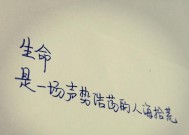 生命
是一场声势浩荡的人海拾荒